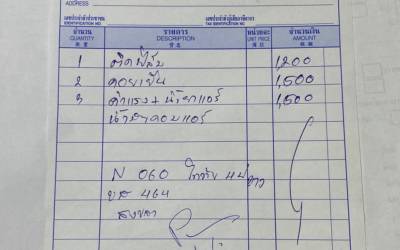 ADDRESS
เลขประจำตัวประชาชน เลขประจำตัวผู้เสียภาษีอากร
IDENTIFICATION NO. TAX IDENTIFICATION NO.
จำนวน รายการ หน่วยละ จำนวนเงิน
QUANTITY DESCRIPTION UNIT PRICE AMOUNT
1 ติดฟิล์ม 1,200
2 คอยเย็น 1,500
3 ค่าแรง + น้ำยาแอร์ 1,500
น้ำมันคอมแอร์
N 060
บล 464
สงขลา